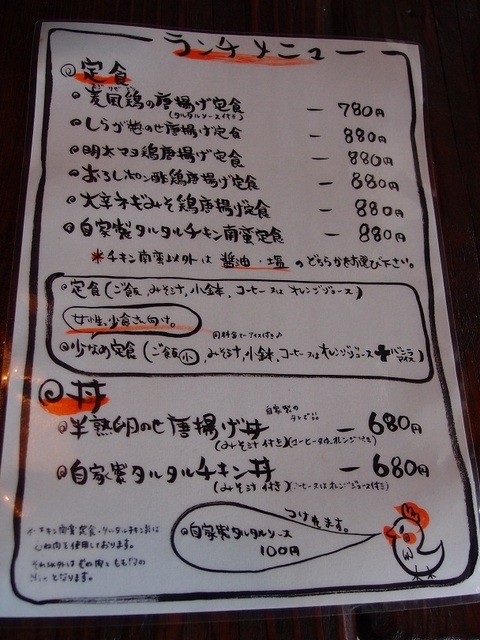 ランチメニュー
◎定食
◎麦風鶏の唐揚げ定食 ― 780円
(タルタルソース付き)
◎しらが葱のせ唐揚げ定食 ― 880円
◎明太マヨ鶏唐揚げ定食 ― 880円
◎おろしポン酢鶏唐揚げ定食 ― 880円
◎大辛ネギみそ鶏唐揚げ定食 ― 880円
◎自家製タルタルチキン南蛮定食 ― 880円
*チキン南蛮以外は 醤油・塩 のどちらかをお選び下さい。
◎定食(ご飯、みそ汁、小鉢、コーヒー又はオレンジジュース)
女性、少食さん向け。
◎少なめ定食(ご飯小、みそ汁、小鉢、コーヒー又はオレンジジュース+バニラアイス)
◎丼
◎半熟卵のせ唐揚げ丼 ― 680円
(みそ汁付き)
◎自家製タルタルチキン丼 ― 680円
(みそ汁付き)(コーヒー又はオレンジジュース付き)
つけれます。
◎自家製タルタルソース
100円
※チキン南蛮定食・タルタルチキン丼は
むね肉を使用しております。
それ以外はむね肉ともも肉の
となります。